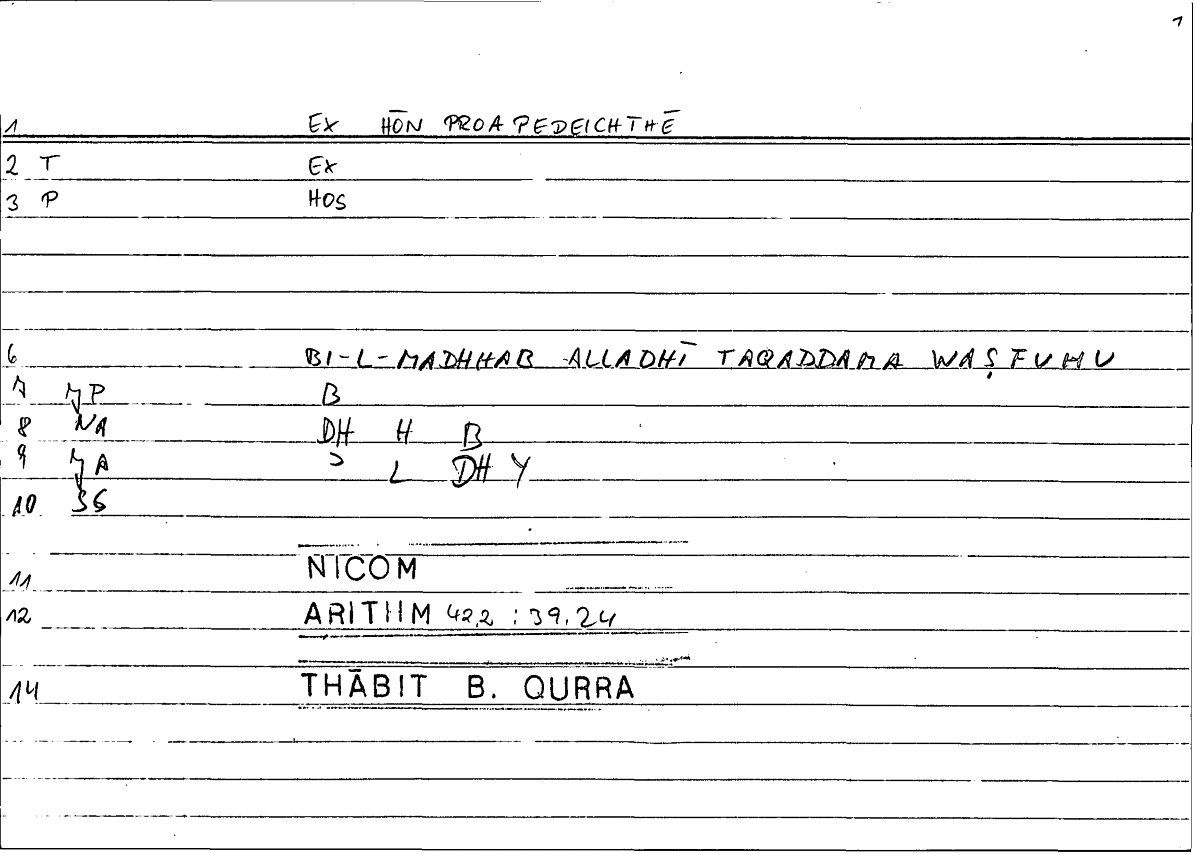 1
1 EX HŌN PROAPEDEICHTHĒ
2 T EX
3 P HOS
6 BI-L-MADHHAB ALLADHĪ TAQADDAMA WAṢFUHU
7 MP B
8 NA DH H B
9 MA ʾ L DH Y
10 SG
11 NICOM
12 ARITHM 42,2 : 39.24
14 THĀBIT B. QURRA